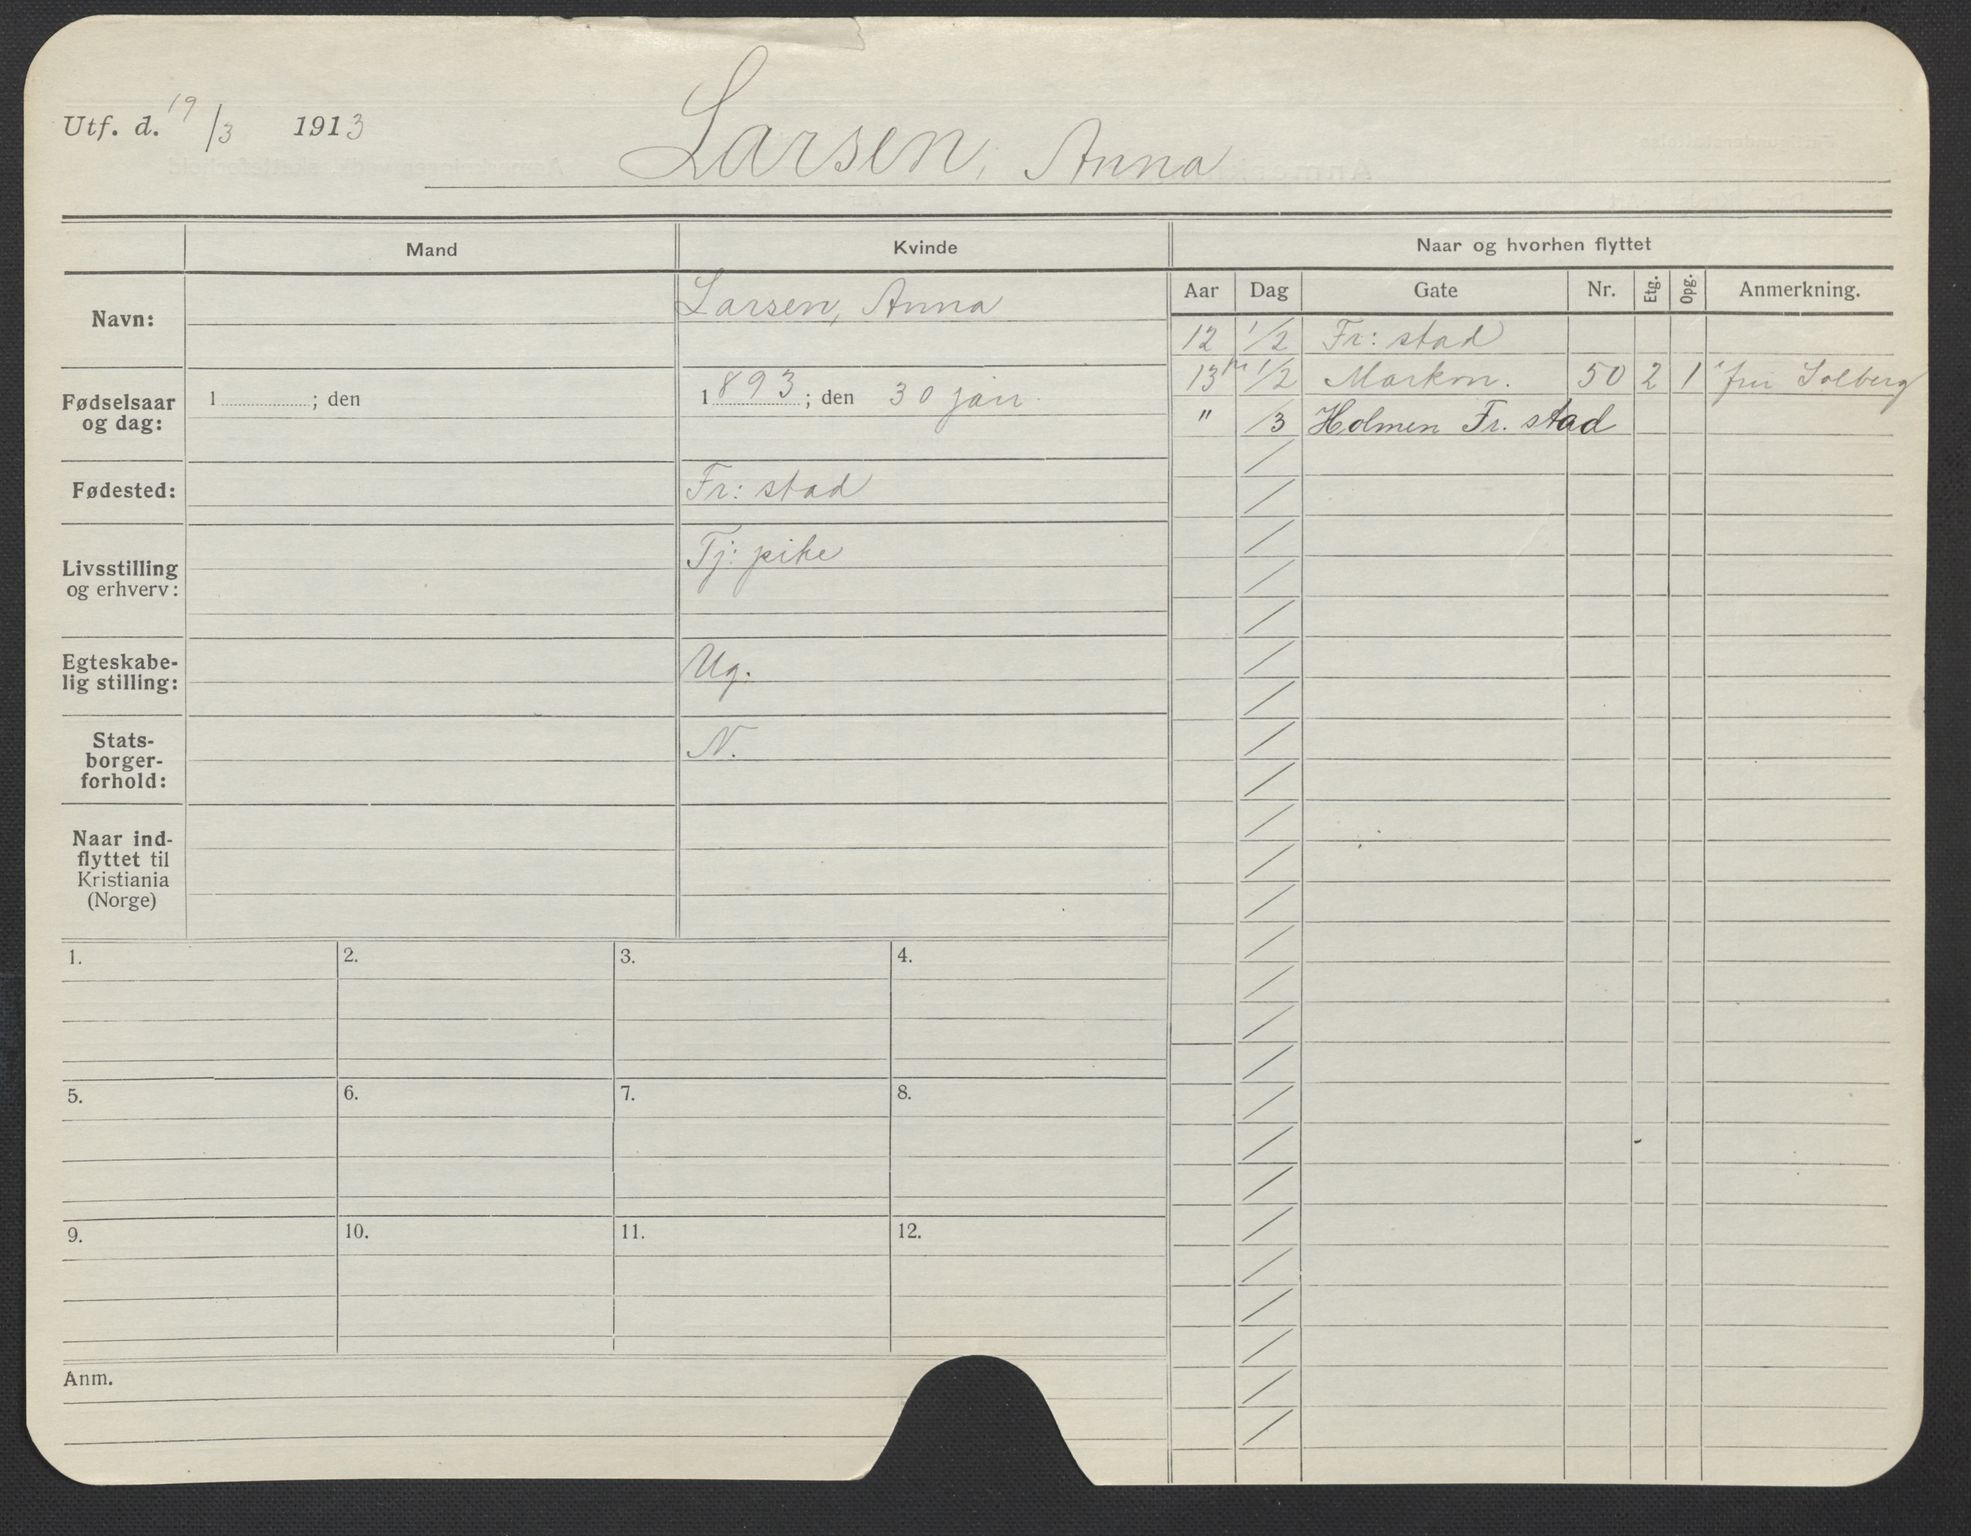 Utf. d. 19/3 1913
Larsen, Anna
Mand
Kvinde
Naar og hvorhen flyttet
Navn:
Larsen, Anna
Fødselsaar og dag:
1 ; den
1893; den 30 jan.
Fødested:
Fr: stad
Livsstilling og erhverv:
Tj: pike
Egteskabe-
lig stilling:
Ug.
Stats-
borger-
forhold:
N.
Naar ind-
flyttet til
Kristiania
(Norge)
Aar Dag Gate Nr. Etg. Opg. Anmerkning.
12 1/2 Fr: stad
13 1/2 Markvn. 50 2 1 Solberg
" /3 Holmen Fr. stad
1. 2. 3. 4.
5. 6. 7. 8.
9. 10. 11. 12.
Anm.